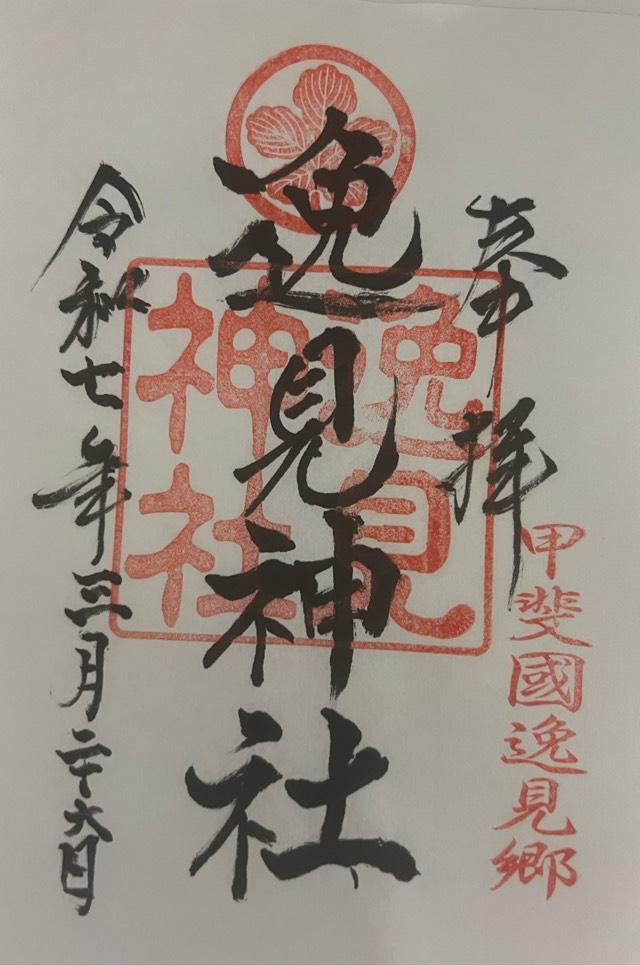 奉拝
甲斐國逸見郷
逸見神社
逸見
神社
令和七年三月二十六日